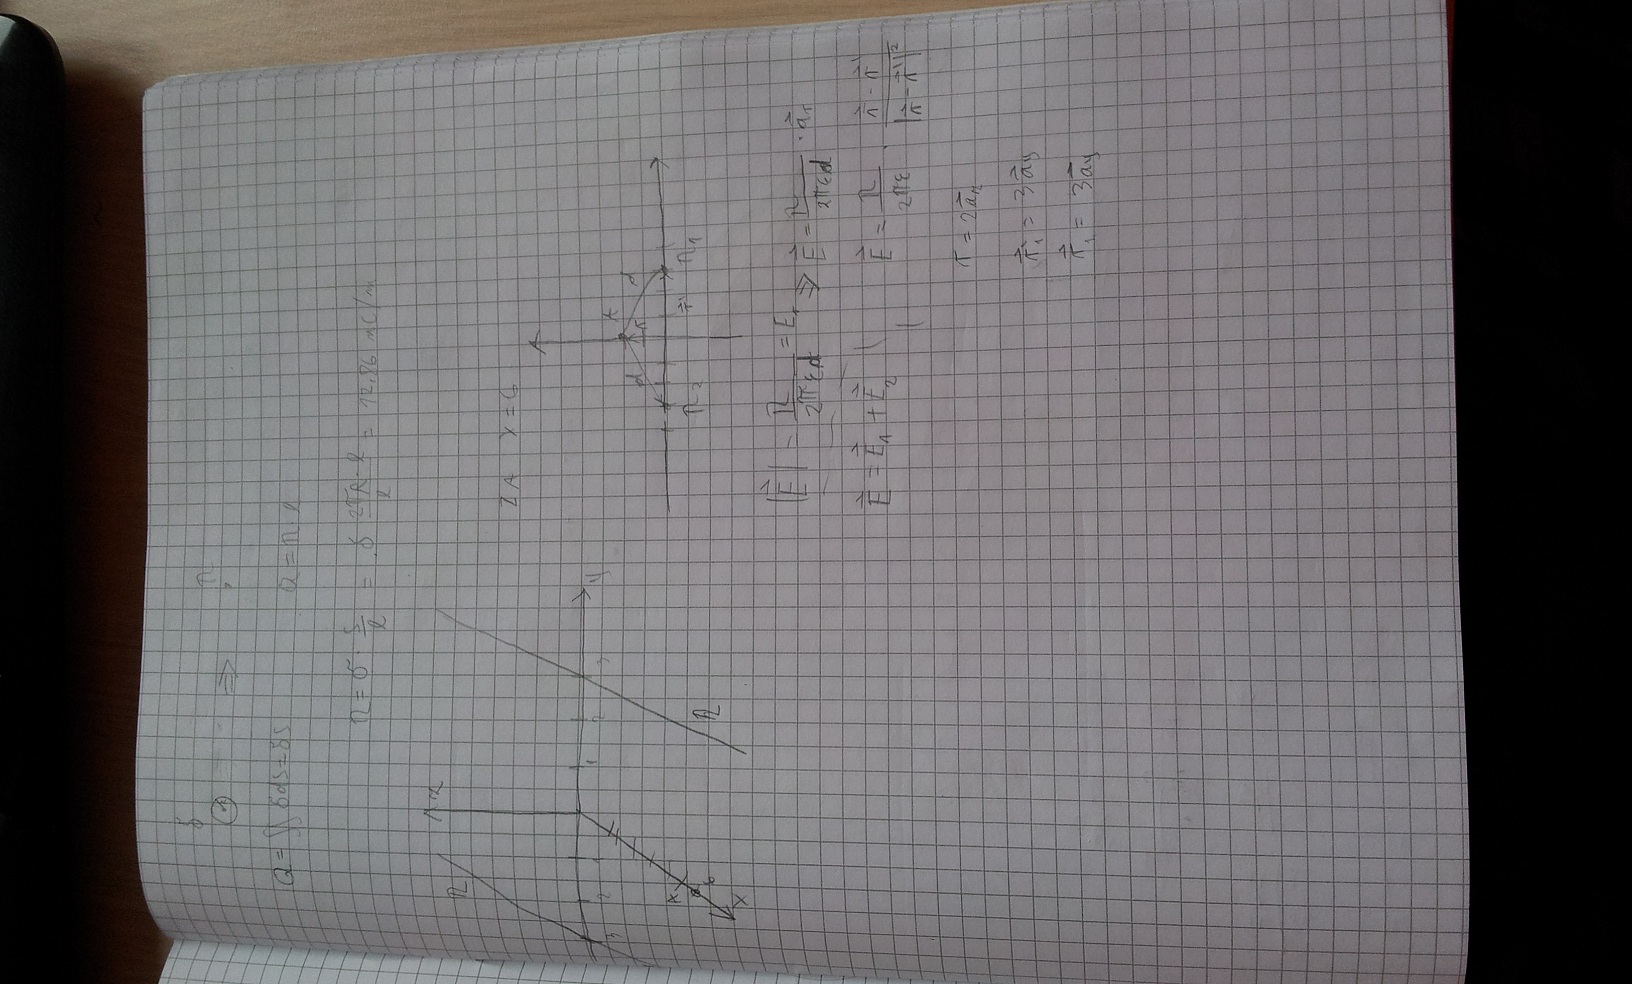 Q = ∬ σds = σS
Q = π l
π = σ · S/l = σ 2πR·l/l = 12.86 nC/m
π
z
3 2 1 1 2 3 y
A
6
x
π
ZA x = 6
A
d d
π₂ r⃗' π₁
|E⃗| = π/2πεd = Eᵣ ⇒ E⃗ = π/2πεd · a⃗ᵣ
E⃗ = E⃗₁ + E⃗₂
E⃗ = π/2πε · (r⃗ - r⃗')/|r⃗ - r⃗'|²
r = 2a⃗z
r⃗₁' = 3a⃗y
r⃗₁ = 3a⃗y